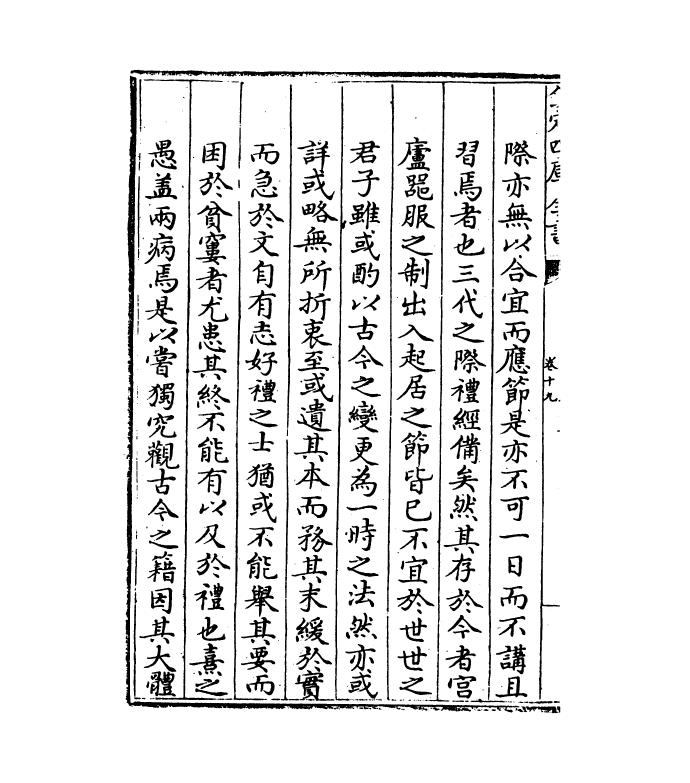 卷十九
際亦無以合宜而應節是亦不可一日而不講且
習焉者也三代之際禮經備矣然其存於今者宮
廬器服之制出入起居之節皆已不宜於世世之
君子雖或酌以古今之變更為一時之法然亦或
詳或略無所折衷至或遺其本而務其末緩於實
而急於文自有志好禮之士猶或不能舉其要而
困於貧窶者尤患其終不能有以及於禮也熹之
愚蓋兩病焉是以嘗獨究觀古今之籍因其大體